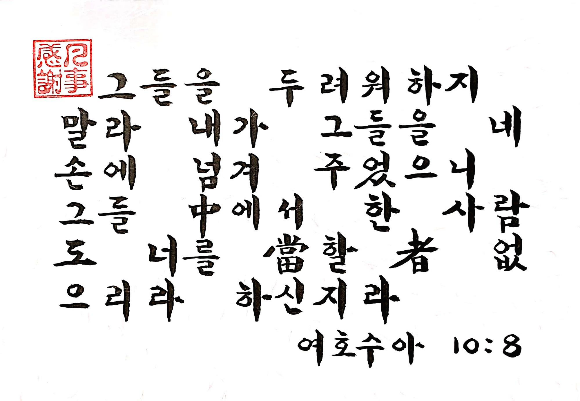 凡事
感謝
그들을 두려워하지
말라 내가 그들을 네
손에 넘겨 주었으니
그들 中에서 한 사람
도 너를 當할 者 없
으리라 하신지라
여호수아 10:8